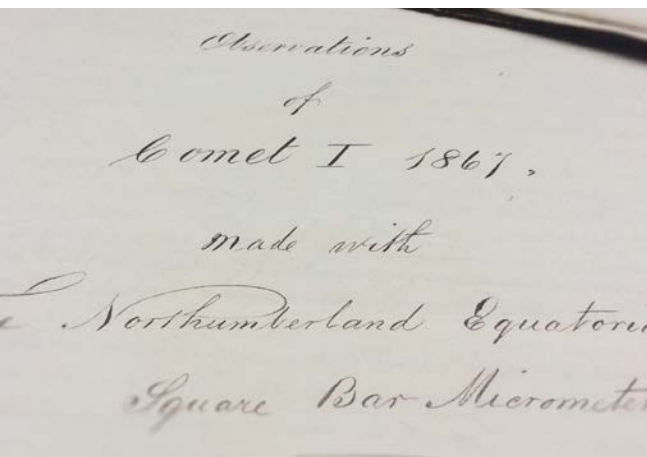 Observations
of
Comet I 1867,
made with
Northumberland Equatori
Square Bar Micrometer